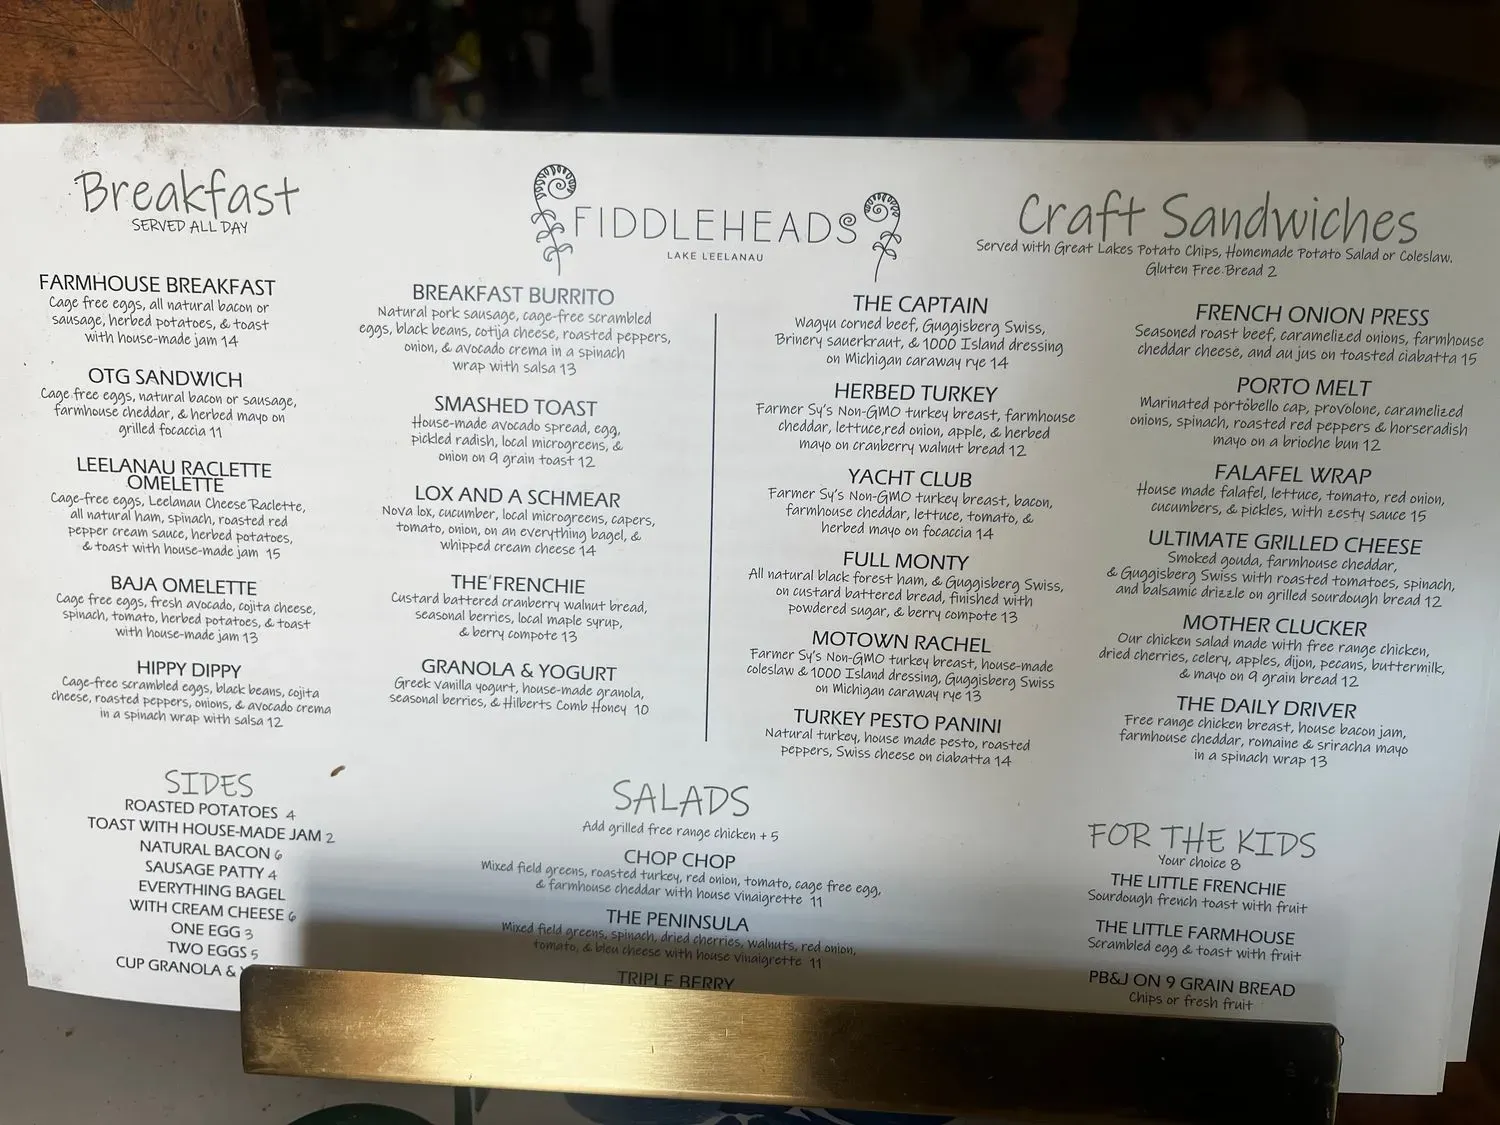 Breakfast
SERVED ALL DAY
FARMHOUSE BREAKFAST
Cage free eggs, all natural bacon or
sausage, herbed potatoes, & toast
with house-made jam 14
OTG SANDWICH
Cage free eggs, natural bacon or sausage,
farmhouse cheddar, & herbed mayo on
grilled focaccia 11
LEELANAU RACLETTE
OMELETTE
Cage-free eggs, Leelanau Cheese Raclette,
all natural ham, spinach, roasted red
pepper cream sauce, herbed potatoes,
& toast with house-made jam 15
BAJA OMELETTE
Cage free eggs, fresh avocado, cojita cheese,
spinach, tomato, herbed potatoes, & toast
with house-made jam 13
HIPPY DIPPY
Cage-free scrambled eggs, black beans, cojita
cheese, roasted peppers, onions, & avocado crema
in a spinach wrap with salsa 12
FIDDLEHEADS
LAKE LEELANAU
BREAKFAST BURRITO
Natural pork sausage, cage-free scrambled
eggs, black beans, cotija cheese, roasted peppers,
onion, & avocado crema in a spinach
wrap with salsa 13
SMASHED TOAST
House-made avocado spread, egg,
pickled radish, local microgreens, &
onion on 9 grain toast 12
LOX AND A SCHMEAR
Nova lox, cucumber, local microgreens, capers,
tomato, onion, on an everything bagel, &
whipped cream cheese 14
THE FRENCHIE
Custard battered cranberry walnut bread,
seasonal berries, local maple syrup,
& berry compote 13
GRANOLA & YOGURT
Greek vanilla yogurt, house-made granola,
seasonal berries, & Hilberts Comb Honey 10
Craft Sandwiches
Served with Great Lakes Potato Chips, Homemade Potato Salad or Coleslaw.
Gluten Free Bread 2
THE CAPTAIN
Wagyu corned beef, Guggisberg Swiss,
Brinery sauerkraut, & 1000 Island dressing
on Michigan caraway rye 14
HERBED TURKEY
Farmer Sy's Non-GMO turkey breast, farmhouse
cheddar, lettuce,red onion, apple, & herbed
mayo on cranberry walnut bread 12
YACHT CLUB
Farmer Sy's Non-GMO turkey breast, bacon,
farmhouse cheddar, lettuce, tomato, &
herbed mayo on focaccia 14
FULL MONTY
All natural black forest ham, & Guggisberg Swiss,
on custard battered bread, finished with
powdered sugar, & berry compote 13
MOTOWN RACHEL
Farmer Sy's Non-GMO turkey breast, house-made
coleslaw & 1000 Island dressing, Guggisberg Swiss
on Michigan caraway rye 13
TURKEY PESTO PANINI
Natural turkey, house made pesto, roasted
peppers, Swiss cheese on ciabatta 14
FRENCH ONION PRESS
Seasoned roast beef, caramelized onions, farmhouse
cheddar cheese, and au jus on toasted ciabatta 15
PORTO MELT
Marinated portobello cap, provolone, caramelized
onions, spinach, roasted red peppers & horseradish
mayo on a brioche bun 12
FALAFEL WRAP
House made falafel, lettuce, tomato, red onion,
cucumbers, & pickles, with zesty sauce 15
ULTIMATE GRILLED CHEESE
Smoked gouda, farmhouse cheddar,
& Guggisberg Swiss with roasted tomatoes, spinach,
and balsamic drizzle on grilled sourdough bread 12
MOTHER CLUCKER
Our chicken salad made with free range chicken,
dried cherries, celery, apples, dijon, pecans, buttermilk,
& mayo on 9 grain bread 12
THE DAILY DRIVER
Free range chicken breast, house bacon jam,
farmhouse cheddar, romaine & sriracha mayo
in a spinach wrap 13
SIDES
ROASTED POTATOES 4
TOAST WITH HOUSE-MADE JAM 2
NATURAL BACON 6
SAUSAGE PATTY 4
EVERYTHING BAGEL
WITH CREAM CHEESE 6
ONE EGG 3
TWO EGGS 5
CUP GRANOLA &
SALADS
Add grilled free range chicken + 5
CHOP CHOP
Mixed field greens, roasted turkey, red onion, tomato, cage free egg,
& farmhouse cheddar with house vinaigrette 11
THE PENINSULA
Mixed field greens, spinach, dried cherries, walnuts, red onion,
tomato, & bleu cheese with house vinaigrette 11
TRIPLE BERRY
FOR THE KIDS
Your choice 8
THE LITTLE FRENCHIE
Sourdough french toast with fruit
THE LITTLE FARMHOUSE
Scrambled egg & toast with fruit
PB&J ON 9 GRAIN BREAD
Chips or fresh fruit